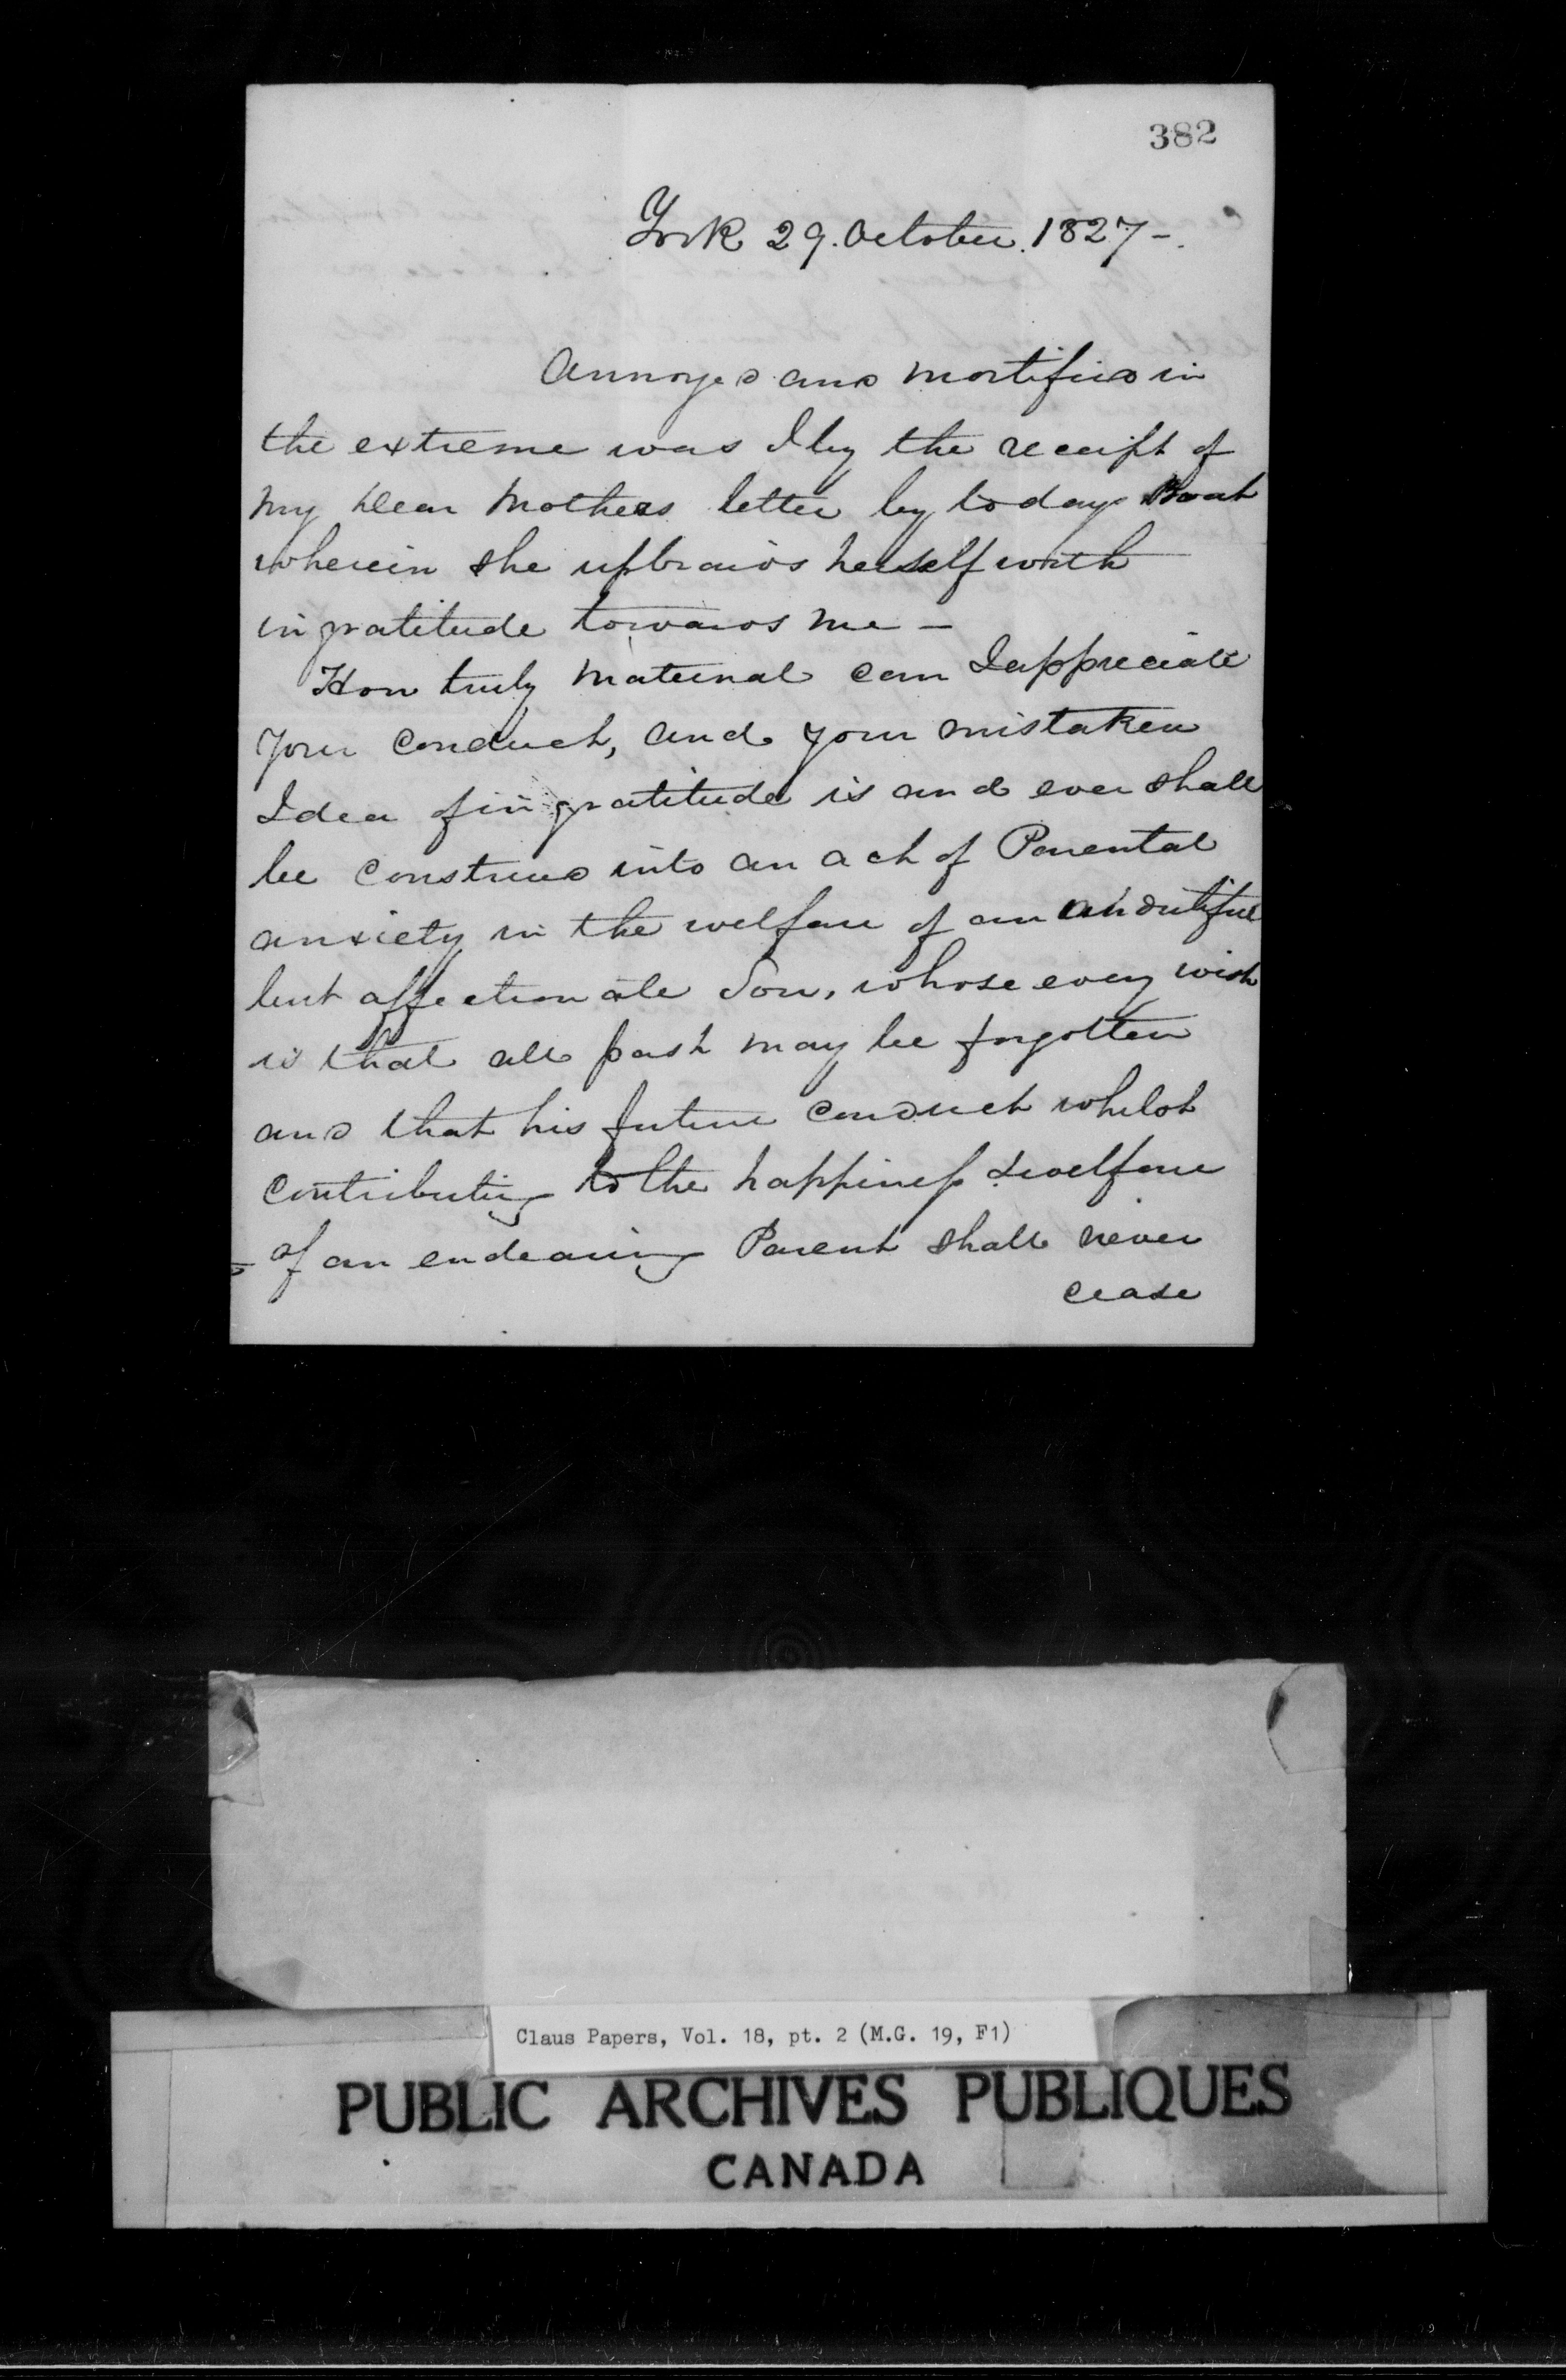 382
York 29. October. 1827 -.
Annoyed and mortified in
the extreme was I by the receipt of
my Dear Mothers letter by to days Boat
wherein she upbraids herself with
ingratitude towards me —
How truly maternal can I appreciate
your conduct, and your mistaken
Idea of ingratitude is and ever shall
be construed into an act of Parental
anxiety in the welfare of an undutiful
but affectionate Son, whose every wish
is that all past may be forgotten
and that his future conduct whilst
contributing to the happiness & welfare
of an endearing Parent shall never
cease
Claus Papers, Vol. 18, pt. 2 (M.G. 19, F1)
PUBLIC ARCHIVES PUBLIQUES
CANADA